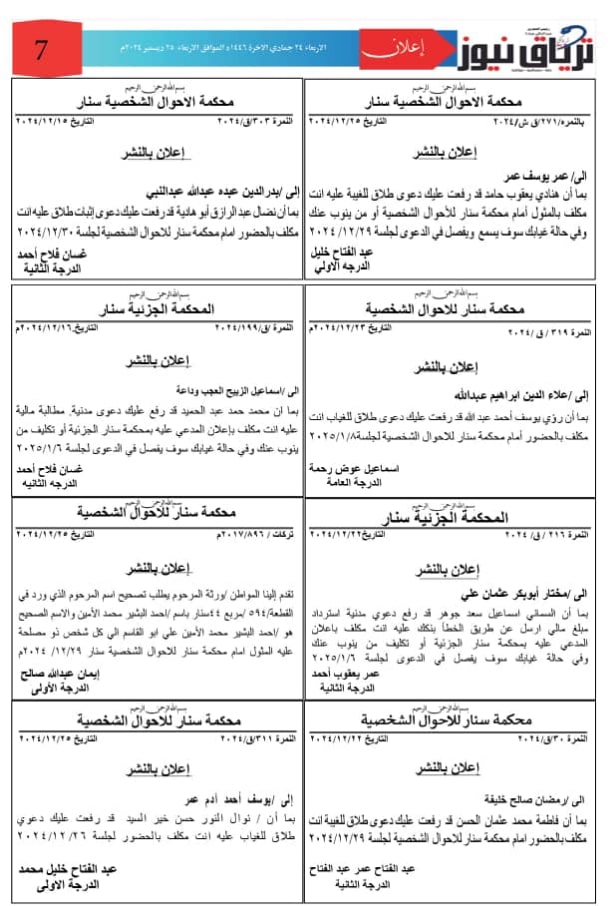 ترياق نيوز
إعلان
الاربعاء ٢٤ جمادي الاخرة ١٤٤٦ه الموافق الاربعاء ٢٥ ديسمبر ٢٠٢٤م
7
بسم الله الرحمن الرحيم
محكمة الاحوال الشخصية سنار
بالنمره/٢٧١/ق ش/٢٠٢٤ التاريخ ٢٠٢٤/١٢/٢٥
إعلان بالنشر
الى/ عمر يوسف عمر
بما أن هنادي يعقوب حامد قد رفعت عليك دعوى طلاق للغيبة عليه انت
مكلف بالمثول أمام محكمة سنار للأحوال الشخصية أو من ينوب عنك
وفي حالة غيابك سوف يسمع ويفصل في الدعوى لجلسة ١٢/٢٩/ ٢٠٢٤
عبد الفتاح خليل
الدرجه الاولي
بسم الله الرحمن الرحيم
محكمة الاحوال الشخصية سنار
النمرة ٣٠٣/ق/٢٠٢٤ التاريخ ٢٠٢٤/١٢/١٥
إعلان بالنشر
إلى /بدرالدين عبده عبدالله عبدالنبي
بما أن نضال عبد الرازق أبو هانية قد رفعت عليك دعوى إثبات طلاق عليه انت
مكلف بالحضور امام محكمة سنار للأحوال الشخصية لجلسة ٢٠٢٤/١٢/٣٠
غسان فلاح أحمد
الدرجة الثانية
بسم الله الرحمن الرحيم
محكمة سنار للاحوال الشخصية
النمرة ٣١٩/ ق /٢٠٢٤ التاريخ ٢٠٢٤/١٢/٢٣م
إعلان بالنشر
إلى/ علاء الدين ابراهيم عبدالله
بما أن رؤي يوسف أحمد عبد الله قد رفعت عليك دعوى طلاق للغياب انت
مكلف بالحضور أمام محكمة سنار للأحوال الشخصية لجلسة٢٠٢٥/١/٨
اسماعيل عوض رحمة
الدرجة العامة
بسم الله الرحمن الرحيم
المحكمة الجزئية سنار
النمرة /ق/٢٠٢٤/١٩٩ التاريخ ٢٠٢٤/١٢/١٦م
إعلان بالنشر
الى /اسماعيل الزبيح العجب وداعة
بما ان محمد حمد عبد الحميد قد رفع عليك دعوى مدنية، مطالبة مالية
عليه انت مكلف بإعلان المدعي عليه بمحكمة سنار الجزئية أو تكليف من
ينوب عنك وفي حالة غيابك سوف يفصل في الدعوى لجلسة ٢٠٢٥/١/٦
غسان فلاح أحمد
الدرجه الثانيه
بسم الله الرحمن الرحيم
المحكمة الجزئية سنار
النمرة ٢١٦/ ق/ ٢٠٢٤ التاريخ ٢٠٢٤/١٢/٢٢
إعلان بالنشر
الى /مختار أبوبكر عثمان علي
بما أن السماني اسماعيل سعد جوهر قد رفع دعوي مدنية استرداد
مبلغ مالي ارسل عن طريق الخطأ بنكك عليه انت مكلف باعلان
المدعي عليه بمحكمة سنار الجزئية أو تكليف من ينوب عنك
وفي حالة غيابك سوف يفصل في الدعوى لجلسة ٢٠٢٥/١/٦
عمر يعقوب أحمد
الدرجة الثانية
بسم الله الرحمن الرحيم
محكمة سنار للأحوال الشخصية
تركات / ٢٠١٧/٨٩٦م التاريخ ٢٠٢٤/١٢/٢٥
إعلان بالنشر
تقدم إلينا المواطن /ورثة المرحوم يطلب تصحيح اسم المرحوم الذي ورد في
القطعة/٥٩٤ /مربع ٤٤سنار باسم /احمد البشير محمد الأمين والاسم الصحيح
هو /احمد البشير محمد الأمين علي ابو القاسم الي كل شخص ذو مصلحة
عليه المثول امام محكمة سنار للأحوال الشخصية سنار ١٢/٢٩/ ٢٠٢٤م
إيمان عبدالله صالح
الدرجة الأولى
بسم الله الرحمن الرحيم
محكمة سنار للاحوال الشخصية
النمرة /٣٠/ق/٢٠٢٤ التاريخ ٢٠٢٤/١٢/٢٢
إعلان بالنشر
الى /رمضان صالح خليفة
بما أن فاطمة محمد عثمان الحسن قد رفعت عليك دعوى طلاق للغيبة انت
مكلف بالحضور امام محكمة سنار للأحوال الشخصية لجلسة ٢٠٢٤/١٢/٢٩
عبد الفتاح عمر عبد الفتاح
الدرجة الثانية
بسم الله الرحمن الرحيم
محكمة سنار للاحوال الشخصية
النمرة ٣١١/ق/٢٠٢٤ التاريخ ٢٠٢٤/١٢/٢٥
إعلان بالنشر
إلى /يوسف أحمد أدم عمر
بما أن / نوال النور حسن خير السيد قد رفعت عليك دعوي
طلاق للغياب عليه انت مكلف بالحضور لجلسة ١٢/٢٦/ ٢٠٢٤
عبد الفتاح خليل محمد
الدرجة الاولى